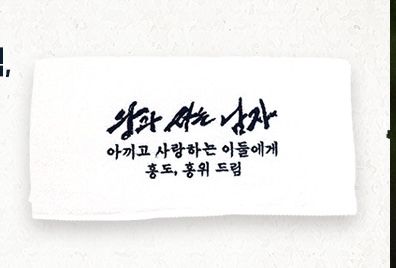 왕과 사는 남자
아끼고 사랑하는 이들에게
흥도, 홍위 드림